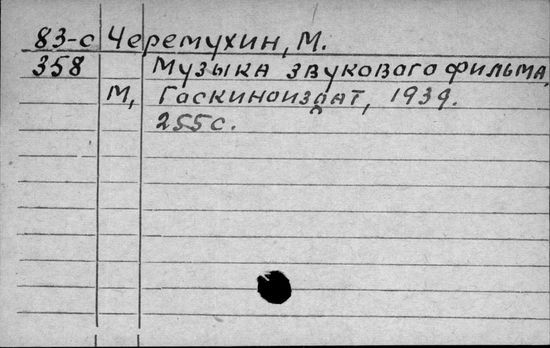 83-с Черемухин, М.
358 Музыка звукового фильма,
М, Госкиноиздат, 1939.
255с.